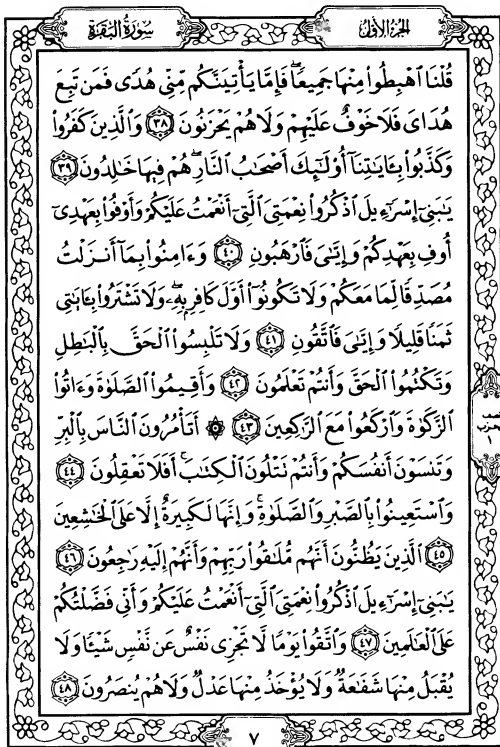 الجزء الأول
سورة البقرة
قُلْنَا ٱهْبِطُوا۟ مِنْهَا جَمِيعًا ۖ فَإِمَّا يَأْتِيَنَّكُم مِّنِّى هُدًى فَمَن تَبِعَ
هُدَاىَ فَلَا خَوْفٌ عَلَيْهِمْ وَلَا هُمْ يَحْزَنُونَ ٣٨ وَٱلَّذِينَ كَفَرُوا۟
وَكَذَّبُوا۟ بِـَٔايَـٰتِنَآ أُو۟لَـٰٓئِكَ أَصْحَـٰبُ ٱلنَّارِ ۖ هُمْ فِيهَا خَـٰلِدُونَ ٣٩
يَـٰبَنِىٓ إِسْرَٰٓءِيلَ ٱذْكُرُوا۟ نِعْمَتِىَ ٱلَّتِىٓ أَنْعَمْتُ عَلَيْكُمْ وَأَوْفُوا۟ بِعَهْدِىٓ
أُوفِ بِعَهْدِكُمْ وَإِيَّـٰىَ فَٱرْهَبُونِ ٤٠ وَءَامِنُوا۟ بِمَآ أَنزَلْتُ
مُصَدِّقًا لِّمَا مَعَكُمْ وَلَا تَكُونُوٓا۟ أَوَّلَ كَافِرٍۭ بِهِۦ ۖ وَلَا تَشْتَرُوا۟ بِـَٔايَـٰتِى
ثَمَنًا قَلِيلًا وَإِيَّـٰىَ فَٱتَّقُونِ ٤١ وَلَا تَلْبِسُوا۟ ٱلْحَقَّ بِٱلْبَـٰطِلِ
وَتَكْتُمُوا۟ ٱلْحَقَّ وَأَنتُمْ تَعْلَمُونَ ٤٢ وَأَقِيمُوا۟ ٱلصَّلَوٰةَ وَءَاتُوا۟
ٱلزَّكَوٰةَ وَٱرْكَعُوا۟ مَعَ ٱلرَّٰكِعِينَ ٤٣ ۞ أَتَأْمُرُونَ ٱلنَّاسَ بِٱلْبِرِّ
وَتَنسَوْنَ أَنفُسَكُمْ وَأَنتُمْ تَتْلُونَ ٱلْكِتَـٰبَ ۚ أَفَلَا تَعْقِلُونَ ٤٤
وَٱسْتَعِينُوا۟ بِٱلصَّبْرِ وَٱلصَّلَوٰةِ ۚ وَإِنَّهَا لَكَبِيرَةٌ إِلَّا عَلَى ٱلْخَـٰشِعِينَ
٤٥ ٱلَّذِينَ يَظُنُّونَ أَنَّهُم مُّلَـٰقُوا۟ رَبِّهِمْ وَأَنَّهُمْ إِلَيْهِ رَٰجِعُونَ ٤٦
يَـٰبَنِىٓ إِسْرَٰٓءِيلَ ٱذْكُرُوا۟ نِعْمَتِىَ ٱلَّتِىٓ أَنْعَمْتُ عَلَيْكُمْ وَأَنِّى فَضَّلْتُكُمْ
عَلَى ٱلْعَـٰلَمِينَ ٤٧ وَٱتَّقُوا۟ يَوْمًا لَّا تَجْزِى نَفْسٌ عَن نَّفْسٍ شَيْـًٔا وَلَا
يُقْبَلُ مِنْهَا شَفَـٰعَةٌ وَلَا يُؤْخَذُ مِنْهَا عَدْلٌ وَلَا هُمْ يُنصَرُونَ ٤٨
١
٧